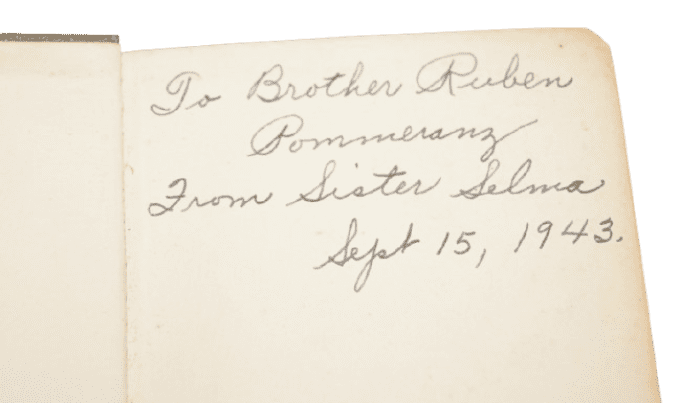 To Brother Ruben
Pommeranz
From Sister Selma
Sept 15, 1943.